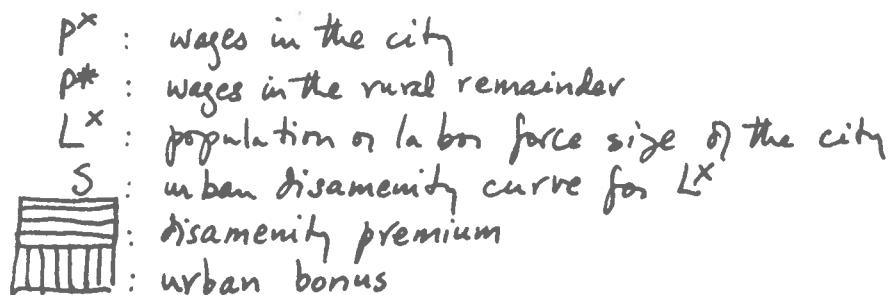 P^x : wages in the city
P* : wages in the rural remainder
L^x : population or labor force size of the city
S : urban disamenity curve for L^x
: disamenity premium
: urban bonus